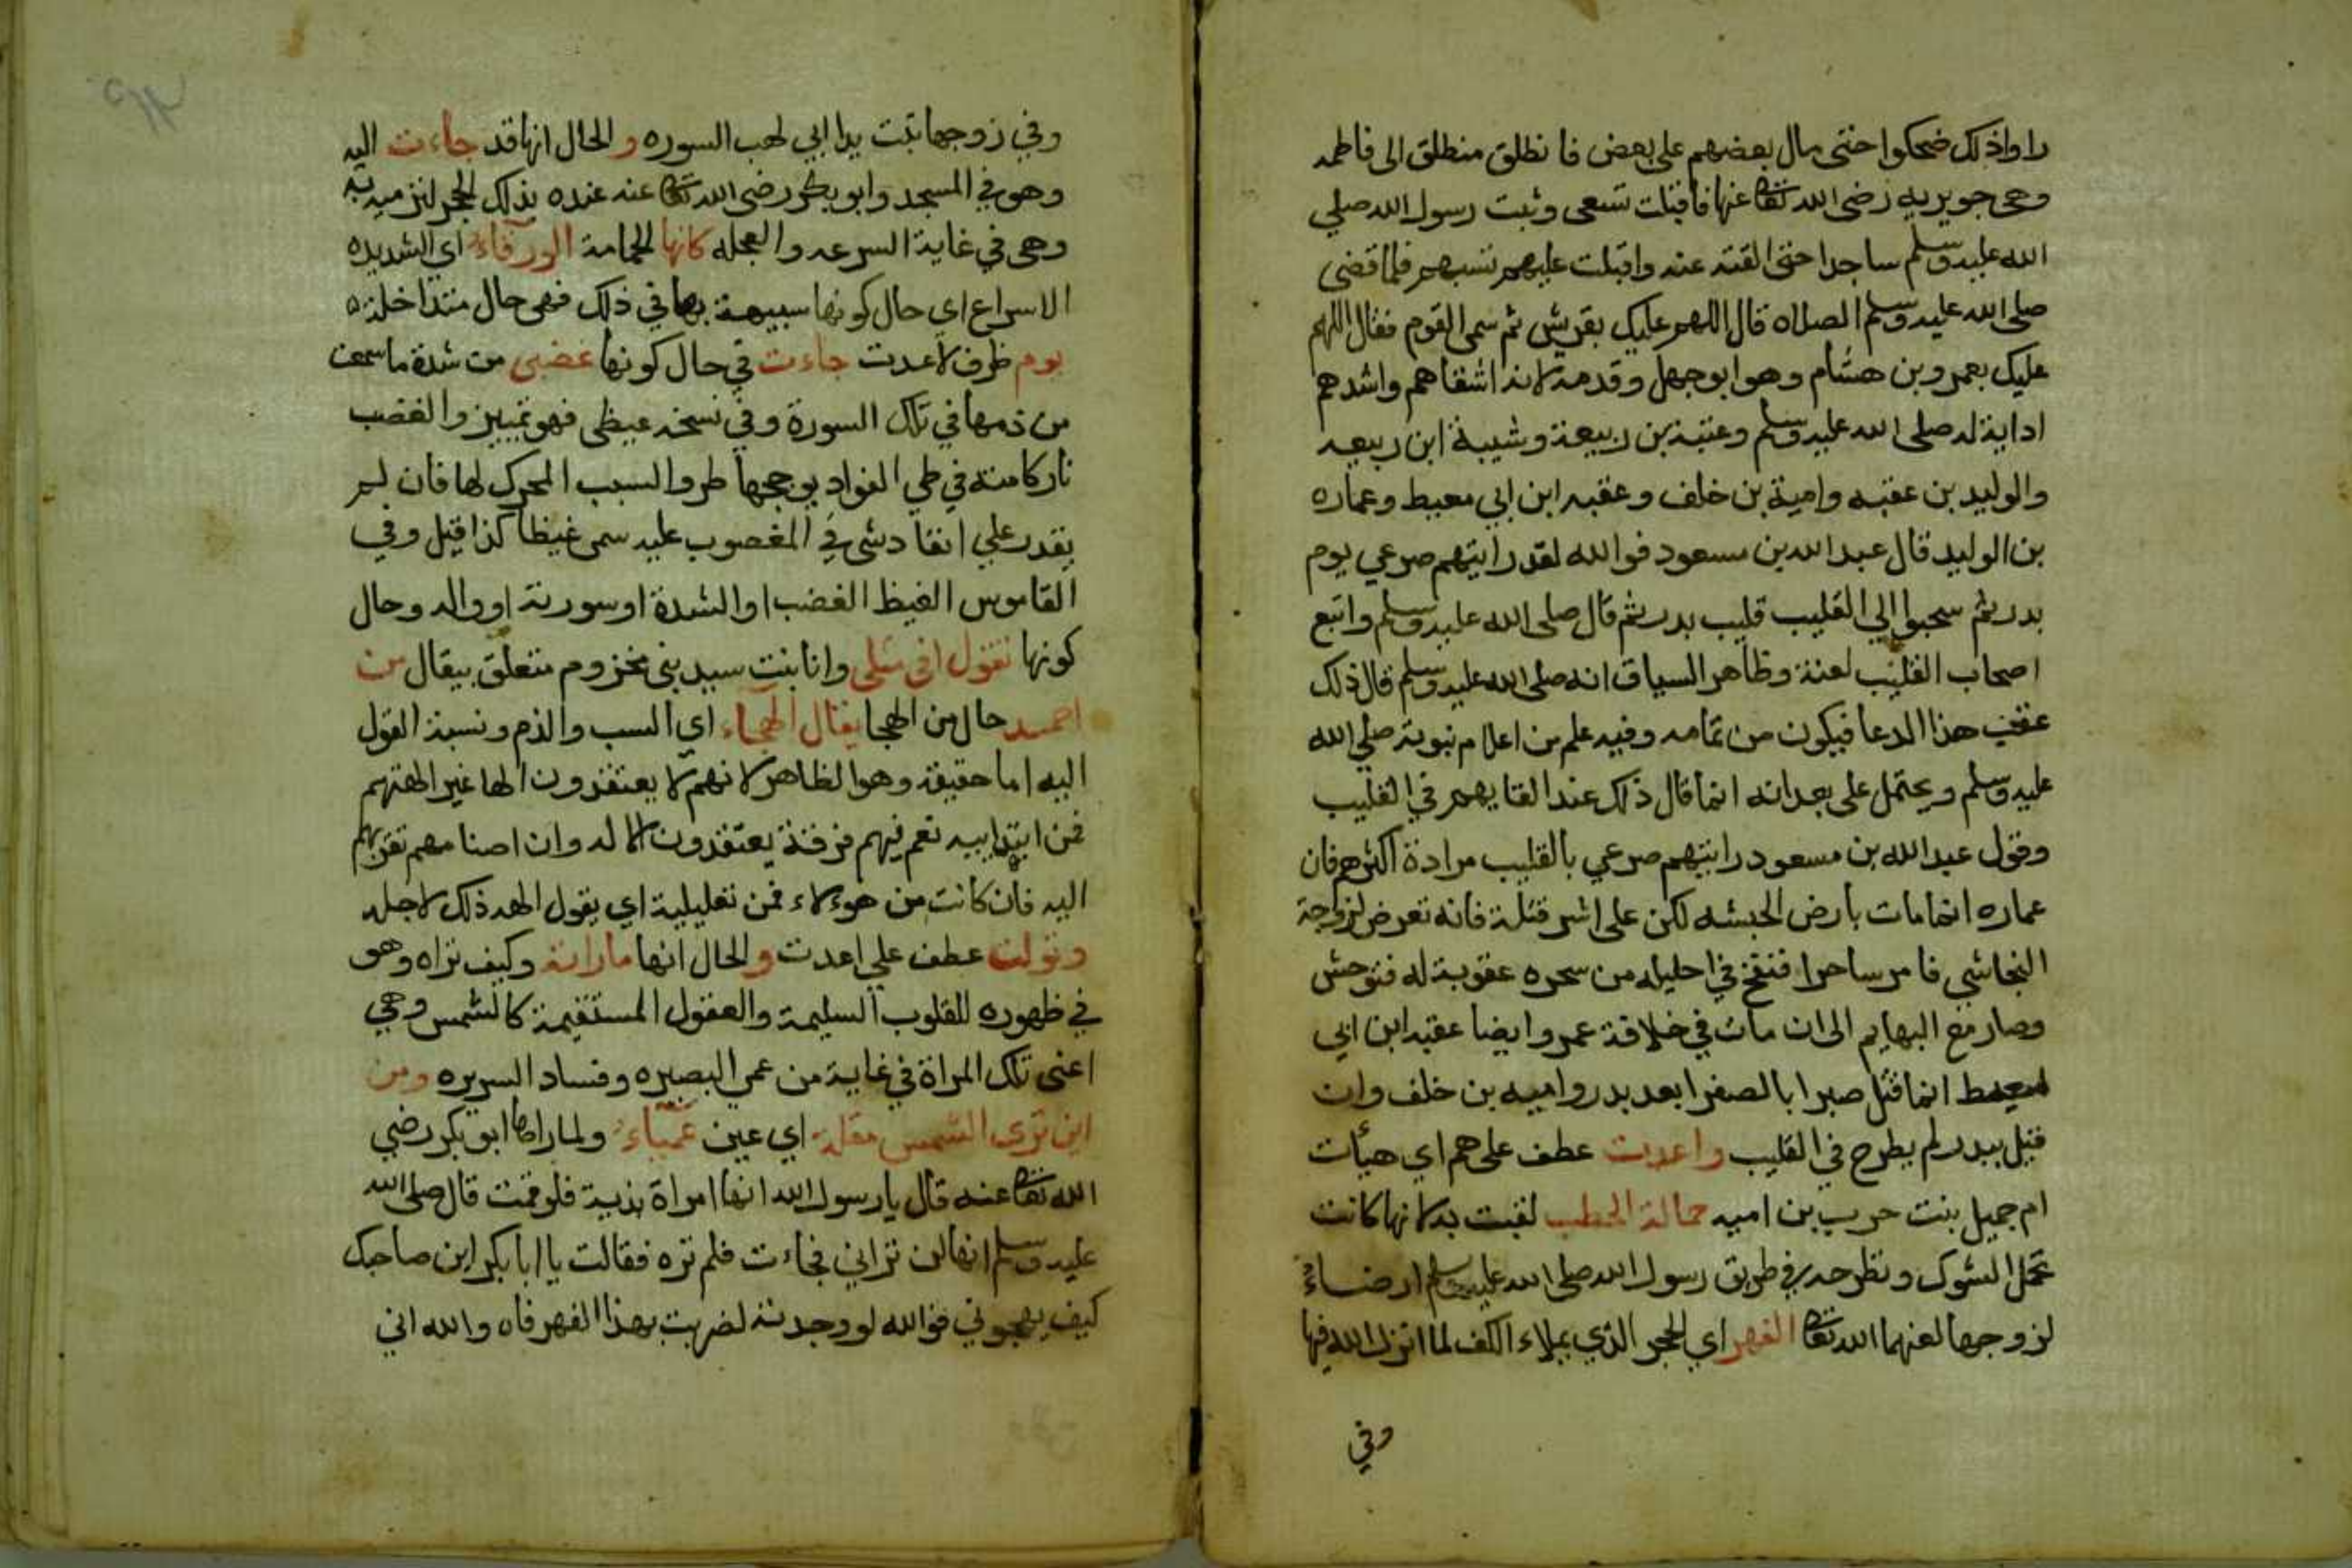 راواذلك ضحكوا حتى مال بعضهم على بعض فانطلق منطلق الى فاطمه
وهى جويريه رضى الله تعالى عنها فاقبلت تسعى وثبت رسول الله صلي
الله عليه وسلم ساجدا حتى القته عنه واقبلت عليهم تسبهم فلما قضى
صلى الله عليه وسلم الصلاه قال اللهم عليك بقريش ثم سمى القوم فقال اللهم
عليك بعمرو بن هشام وهو ابو جهل وقدمه لانه اشقاهم واشدهم
اداية له صلى الله عليه وسلم وعتبة بن ربيعة وشيبة ابن ربيعه
والوليد بن عقبه وامية بن خلف وعقبه ابن ابي معيط وعماره
بن الوليد قال عبد الله بن مسعود فوالله لقد رايتهم صرعي يوم
بدر ثم سحبوا الي القليب قليب بدر ثم قال صلى الله عليه وسلم واتبع
اصحاب القليب لعنة وظاهر السياق انه صلى الله عليه وسلم قال ذلك
عقب هذا الدعا فيكون من تمامه وفيه علم من اعلام نبوته صلي الله
عليه وسلم ويحتمل على بعد انه انما قال ذلك عند القايهم في القليب
وقول عبد الله بن مسعود رايتهم صرعي بالقليب مراده اكثرهم فان
عماره انما مات بارض الحبشه لكن على اشر قتلة فانه تعرض لزوجة
النجاشي فامر ساحرا فنفخ في احليله من سحره عقوبة له فتوحش
وصار مع البهايم الى ان مات في خلافة عمر وايضا عقبه ابن ابي
معيط انما قتل صبرا بالصفرا بعد بدر واميه بن خلف وان
قتل ببدر لم يطرح في القليب واعدت عطف على هم اي هيأت
ام جميل بنت حرب بن اميه حمالة الحطب لقبت به لانها كانت
تحمل الشوك وتطرحه في طريق رسول الله صلى الله عليه وسلم ارضاءً
لزوجها لعنهما الله تعالى الفهر اي الحجر الذي يملاء الكف لما انزل الله فيها
وفي
وفي زوجها تبت يدا ابي لهب السوره والحال انها قد جاءت اليه
وهو في المسجد وابو بكر رضى الله تعالى عنه عنده بذلك الحجر لترميه به
وهى في غاية السرعه والعجله كانها الحمامة الورقاء اي الشديده
الاسراع اي حال كونها سبيهة بها في ذلك فهى حال متداخلة
يوم ظرف لاعدت جاءت في حال كونها غضبى من شدة ما سمعت
من ذمها في تلك السورة وفي نسخه غيظى فهو تمييز والغضب
نار كامنة في طي الفواد يوججها طرو السبب المحرك لها فان لم
يقدر علي انفاد شي في المغصوب عليه سمى غيظا كذا قيل وفي
القاموس الغيظ الغضب او الشدة او سورته او اوله وحال
كونها تقول افي مثلي وانا بنت سيد بنى مخزوم متعلق بيقال من
احمد حال من الهجا يقال الهجاء اي السب والذم ونسبة القول
اليه اما حقيقة وهو الظاهر لانهم لا يعتقدون الها غير الهتهم
فمن ابتدابيه نعم فيهم فرقة يعتقدون الاله وان اصنامهم تقربهم
اليه فان كانت من هوءلاء فمن تعليلية اي يقول الهه ذلك لاجله
وتولت عطف علي اعدت والحال انها ما راته وكيف تراه وهو
في ظهوره للقلوب السليمة والعقول المستقيمة كالشمس وهي
اعنى تلك المراة في غاية من عمى البصيره وفساد السريره ومن
اين ترى الشمس مقلة اي عين عمياء ولما راها ابو بكر رضي
الله تعالى عنه قال يا رسول الله انها امراة بذية فلو قمت قال صلى الله
عليه وسلم انها لن تراني فجاءت فلم تره فقالت يا ابا بكر اين صاحبك
كيف يهجوني فوالله لو وجدته لضربت بهذا الفهر فاه والله اني